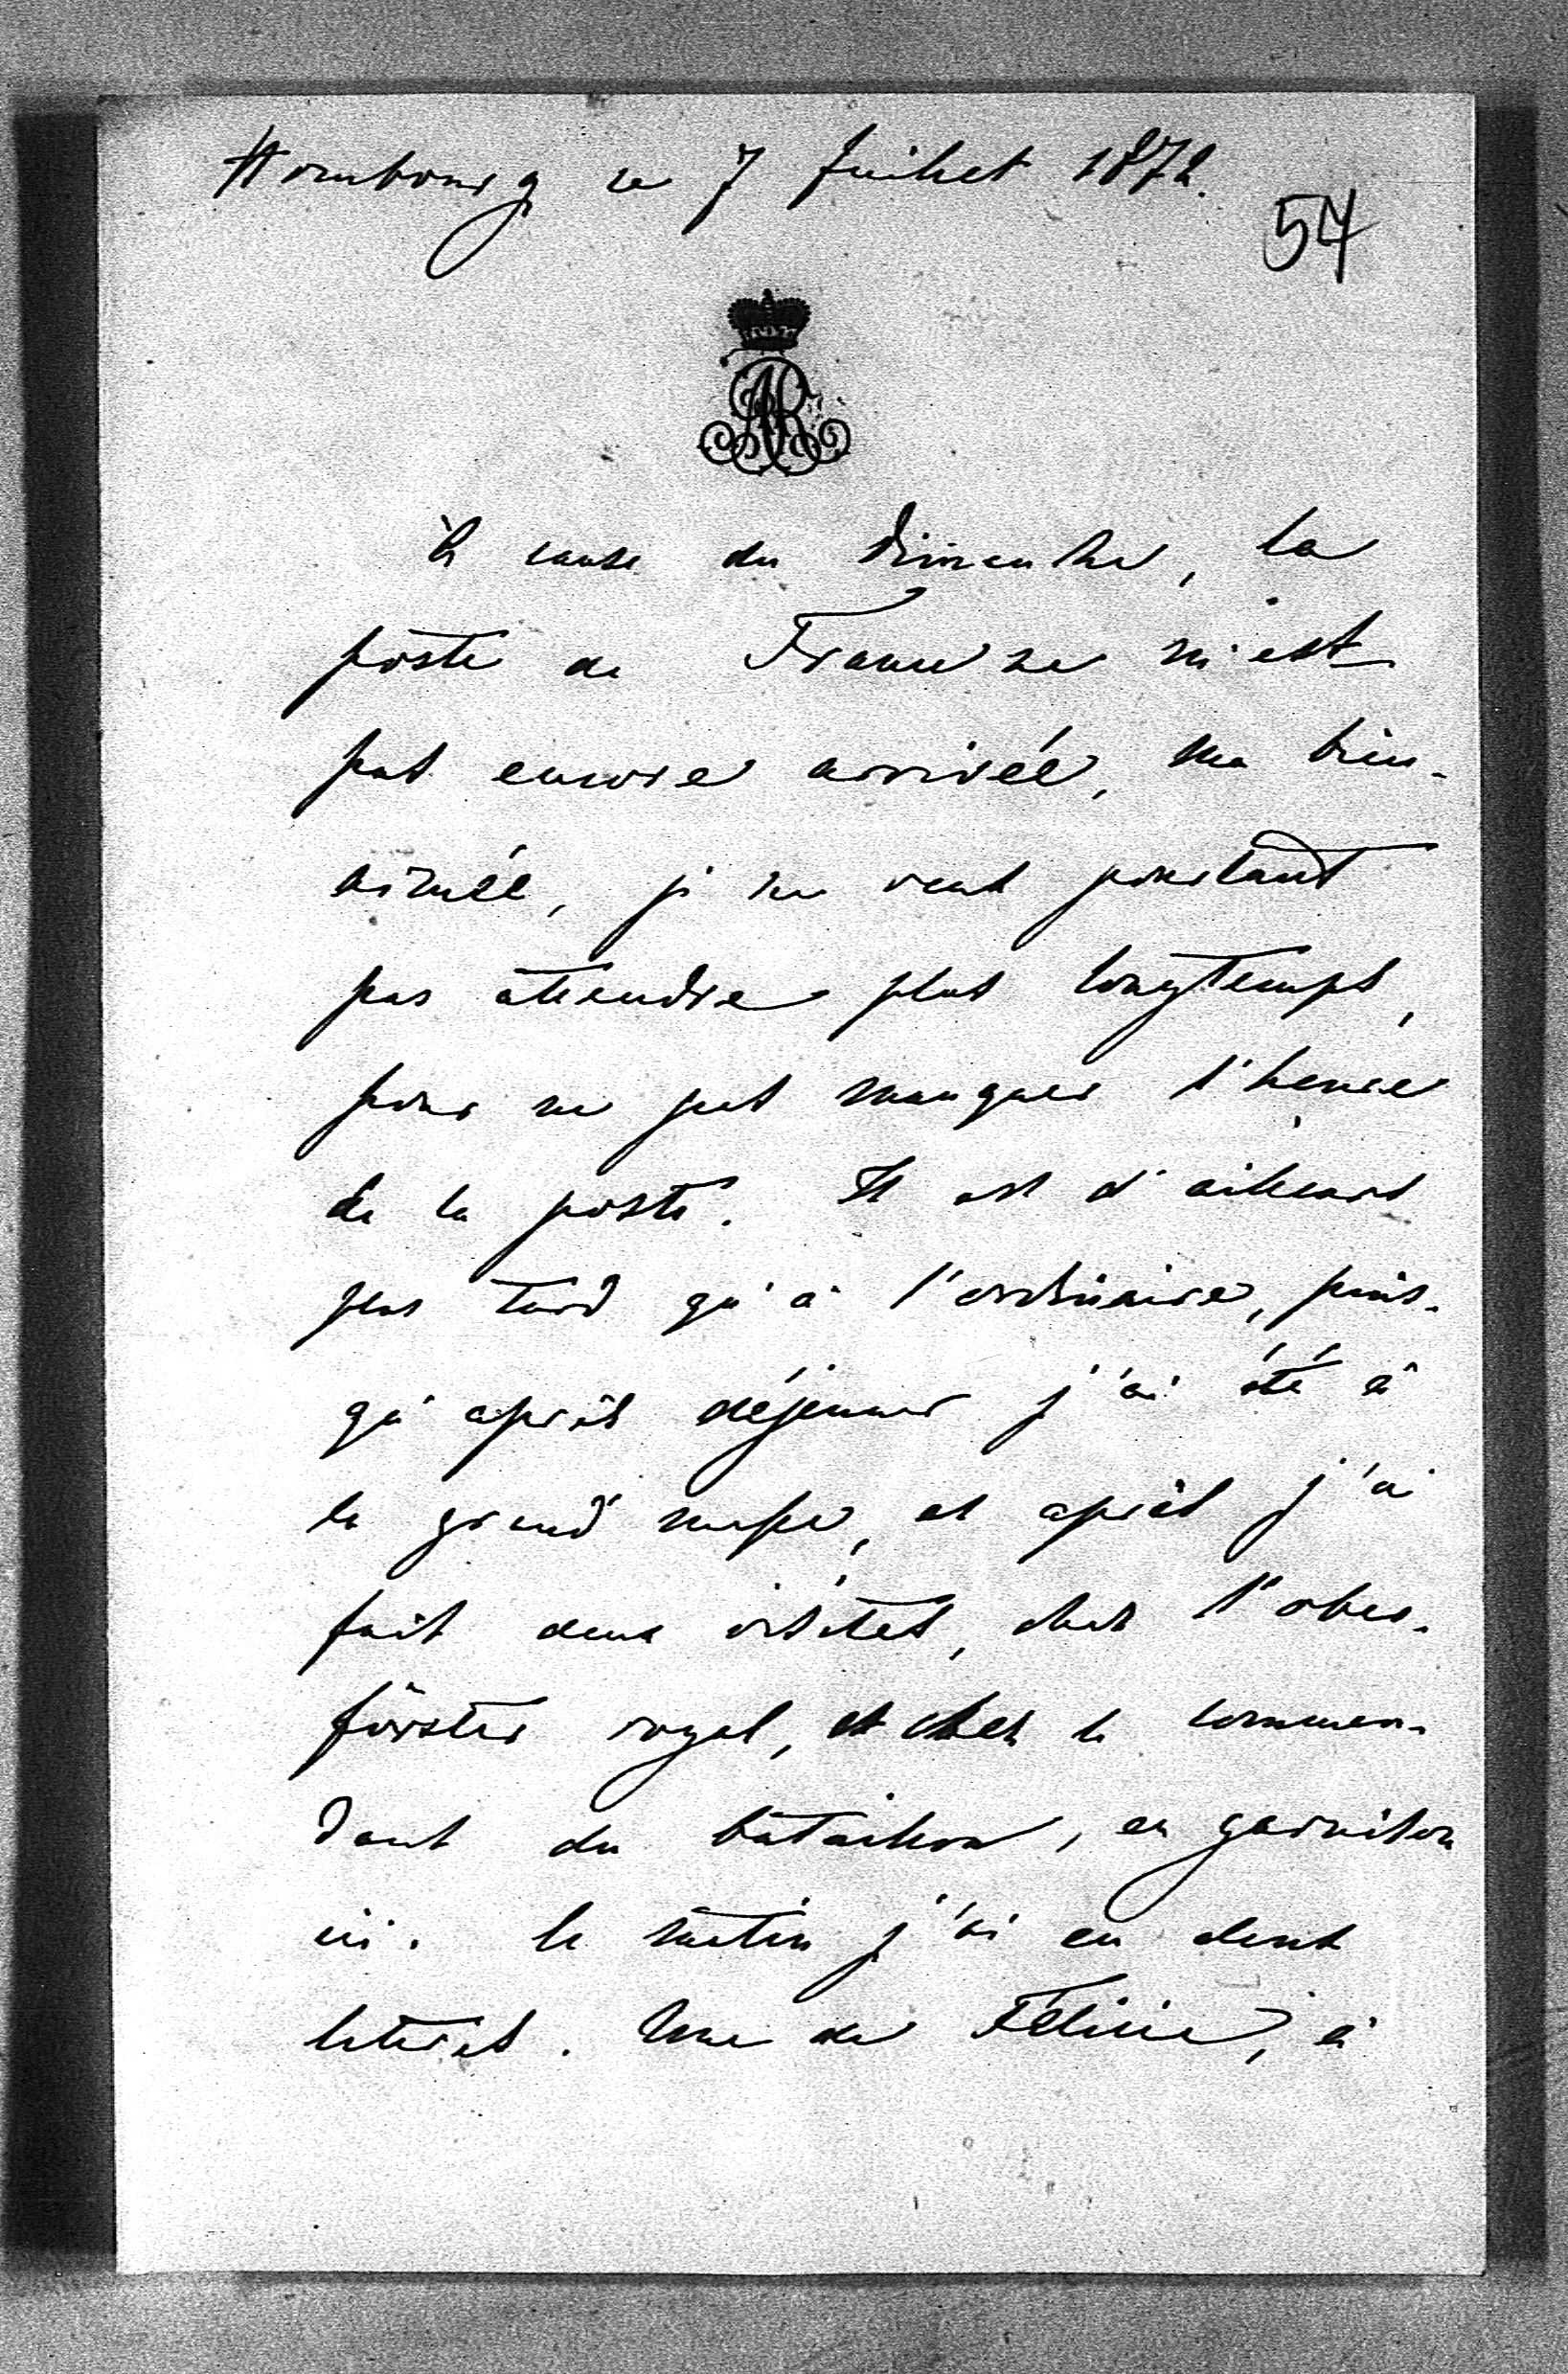 Hombourg ce 7 Juillet 1872.
54
AR
à cause du dimanche, la
poste de France ne m'est
pas encore arrivée, ma bien-
aimée, je ne veux pourtant
pas attendre plus longtemps,
pour ne pas manquer l'heure
de la poste. Il est d'ailleurs
plus tard qu'à l'ordinaire, puis-
qu'après déjeuner j'ai été à
la grand messe, et après j'ai
fait deux visites, chez l'ober-
förster royal, et chez le comman-
dant du bataillon, en garnison
ici. le matin j'ai eu deux
lettres. Une de Félicie, à